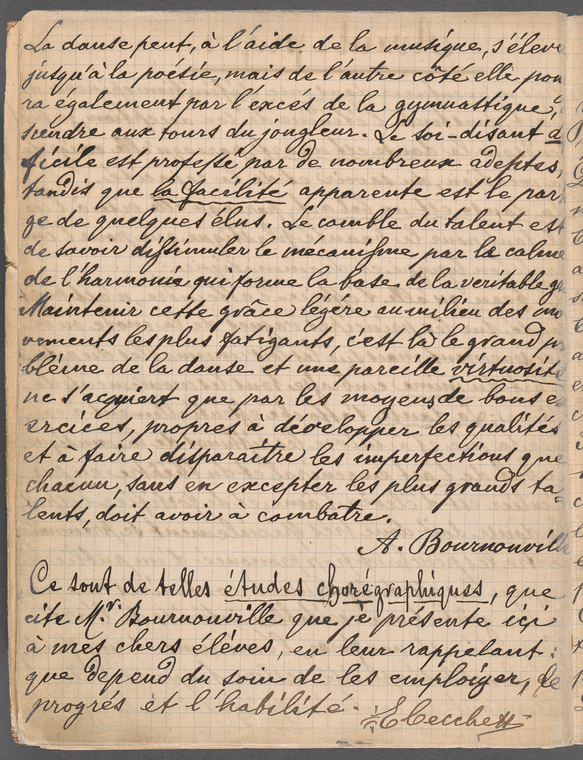 La danse peut, à l'aide de la musique, s'éleve
jusqu'à la poésie, mais de l'autre côté elle pou
ra également par l'excés de la gymnastique,
sendre aux tours du jongleur. Le soi-disant d
ficile est professé par de nombreux adeptes,
tandis que la facilité apparente est le par
ge de quelques élus. Le comble du talent est
de savoir dissimuler le mécanisme par le calme
de l'harmonie qui forme la base de la veritable g
Maintenir cette grâce légére au milieu des mo
vements les plus fatigants, c'est là le grand p
bléme de la danse et une pareille virtuosité
ne s'acquiert que par les moyens de bons e
ercices, propres à développer les qualités
et à faire disparaître les imperfections que
chacun, sans en excepter les plus grands ta-
lents, doit avoir à combatre.
A. Bournonvill
Ce sont de telles études chorégraphiques, que
cite Mr. Bournonville que je présente içi
à mes chers éléves, en leur rappelant:
que depend du soin de les employer, le
progrés et l'habilité. E Cecchetti